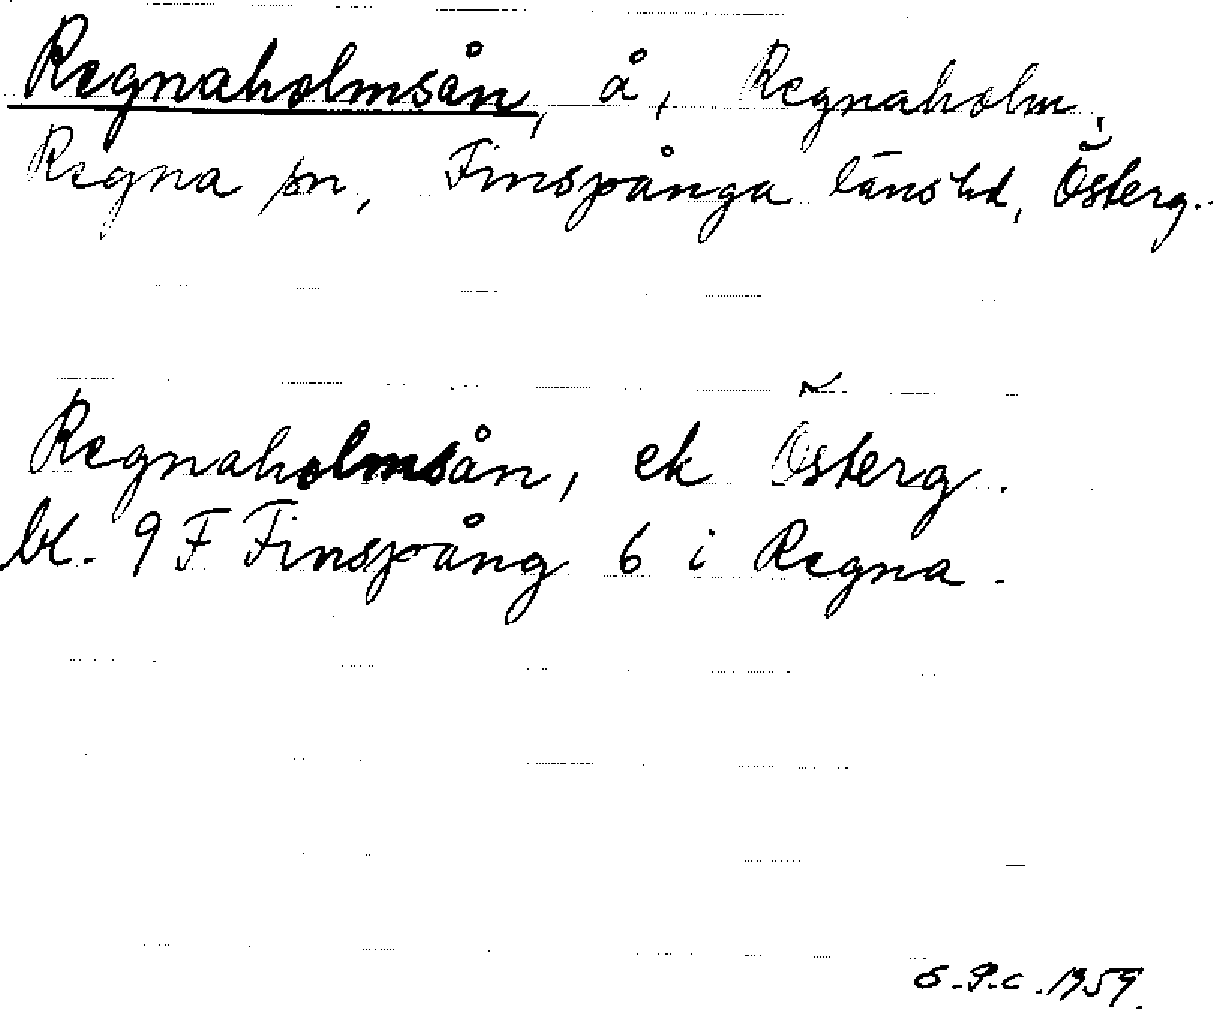 Regnaholmsån, å, Regnaholm,
Regna sn, Finspånga länshd, Österg.
Regnaholmsån, ek Österg.
bl. 9 F Finspång 6 i Regna.
1959.